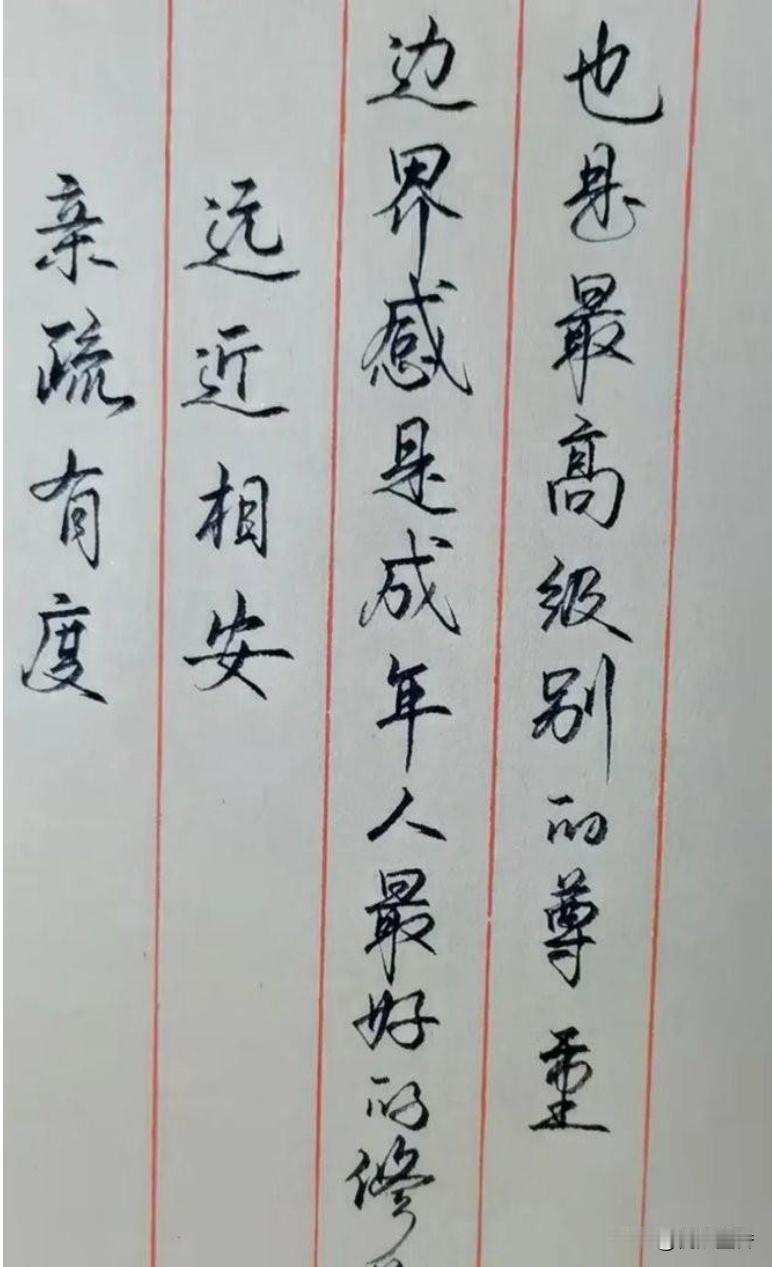 也是最高级别的尊重
边界感是成年人最好的修
远近相安
亲疏有度